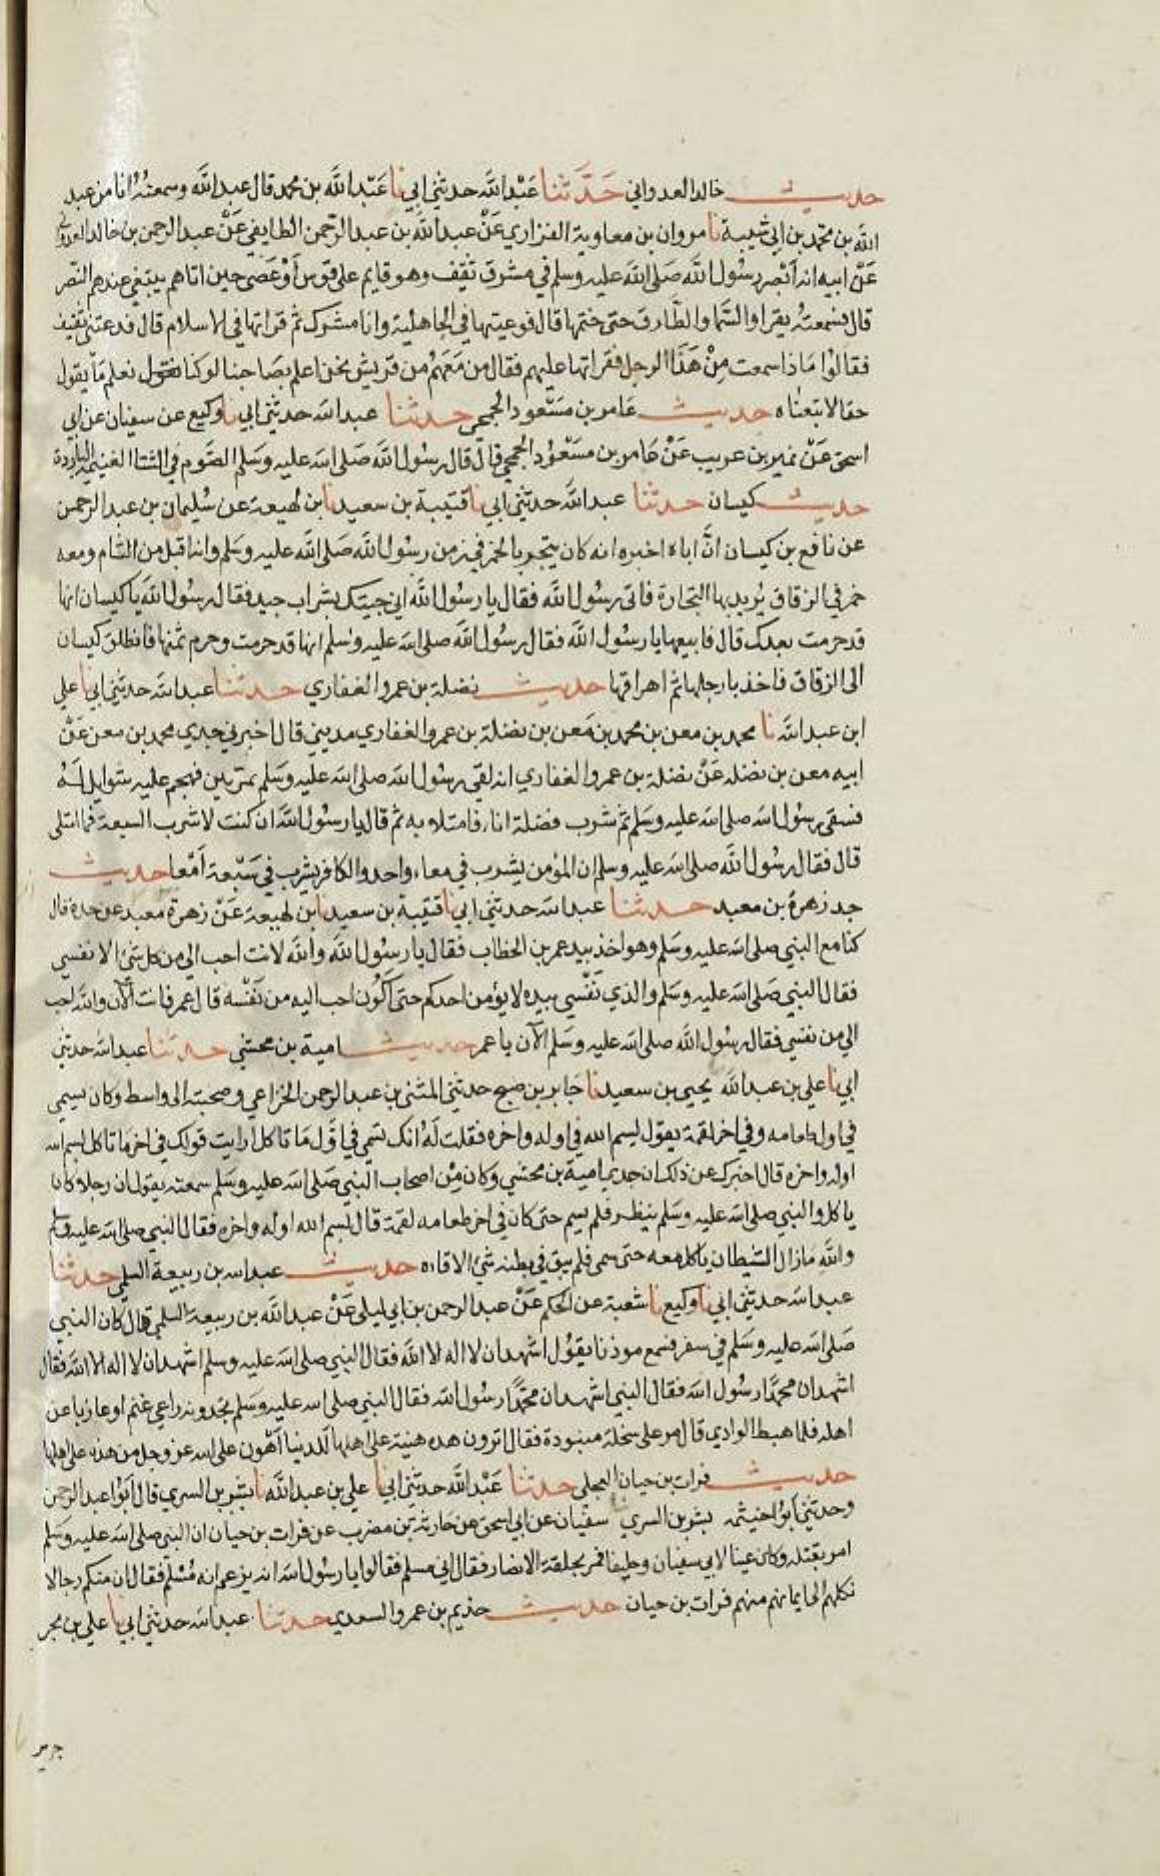 حديث خالد العدواني حدثنا عبد الله حدثني ابي نا عبد الله بن محمد قال عبد الله وسمعته انا من عبد
الله بن محمد بن ابي شيبة نا مروان بن معاوية الفزاري عن عبد الله بن عبد الرحمن الطايفي عن عبد الرحمن بن خالد العدواني
عن ابيه انه ابصر رسول الله صلى الله عليه وسلم في مشرق ثقيف وهو قايم على قوس او عصى حين اتاهم يبتغي عندهم النصر
قال فسمعته يقرا والسما والطارق حتى ختمها قال فوعيتها في الجاهلية وانا مشرك ثم قراتها في الاسلام قال فدعتني ثقيف
فقالوا ماذا سمعت من هذا الرجل فقراتها عليهم فقال من معهم من قريش نحن اعلم بصاحبنا لو كنا نعلم ما يقول
حقا لاتبعناه حديث عامر بن مسعود الجمحي حدثنا عبد الله حدثني ابي نا وكيع عن سفيان عن ابي
اسحق عن نمير بن عريب عن عامر بن مسعود الجمحي قال قال رسول الله صلى الله عليه وسلم الصوم في الشتا الغنيمة الباردة
حديث كيسان حدثنا عبد الله حدثني ابي نا قتيبة بن سعيد نا بن لهيعة عن سليمان بن عبد الرحمن
عن نافع بن كيسان ان اباه اخبره انه كان يتجر بالخمر في زمن رسول الله صلى الله عليه وسلم وانه اقبل من الشام ومعه
خمر في الزقاق يريد بها التجارة فاتى رسول الله فقال يا رسول الله اني جيتك بشراب جيد فقال رسول الله يا كيسان انها
قد حرمت بعدك قال فابيعها يا رسول الله فقال رسول الله صلى الله عليه وسلم انها قد حرمت وحرم ثمنها فانطلق كيسان
الى الزقاق فاخذ بارجلها ثم اهراقها حديث نضلة بن عمرو الغفاري حدثنا عبد الله حدثني ابي نا علي
ابن عبد الله نا محمد بن معن بن محمد بن معن بن نضلة بن عمرو الغفاري مديني قال اخبرني جدي محمد بن معن عن
ابيه معن بن نضله عن نضلة بن عمرو الغفاري انه لقي رسول الله صلى الله عليه وسلم بمريين فهجم عليه شوايل له
فسقى رسول الله صلى الله عليه وسلم ثم شرب فضلة انا، فامتلاه به ثم قال يا رسول الله ان كنت لاشرب السبعة فما امتلى
قال فقال رسول الله صلى الله عليه وسلم ان المؤمن يشرب في معا، واحد والكافر يشرب في سبعة امعا حديث
جد زهرة بن معبد حدثنا عبد الله حدثني ابي نا قتيبة بن سعيد نا بن لهيعة عن زهرة معبد عن جده قال
كنا مع النبي صلى الله عليه وسلم وهو اخذ بيد عمر بن الخطاب فقال يا رسول الله والله لانت احب الي من كل شئ الا نفسي
فقال النبي صلى الله عليه وسلم والذي نفسي بيده لا يؤمن احدكم حتى اكون احب اليه من نفسه قال عمر فانت الآن والله احب
الي من نفسي فقال رسول الله صلى الله عليه وسلم الآن يا عمر حديث امية بن مخشي حدثنا عبد الله حدثني
ابي نا علي بن عبد الله يحيى بن سعيد نا جابر بن صبح حدثني المثنى بن عبد الرحمن الخزاعي وصحبته الى واسط وكان يسمي
في اول طعامه وفي اخر لقمة يقول بسم الله في اوله واخره فقلت له انك تسمي في اول ما تاكل ارايت قولك في اخر ما تاكل بسم الله
اوله واخره قال اخبرك عن ذلك ان جدي امية بن مخشي وكان من اصحاب النبي صلى الله عليه وسلم سمعته يقول ان رجلا كان
ياكل والنبي صلى الله عليه وسلم ينظر فلم يسم حتى كان في اخر طعامه لقمة قال بسم الله اوله واخره فقال النبي صلى الله عليه وسلم
والله ما زال الشيطان ياكل معه حتى سمى فلم يبق في بطنه شئ الا قاءه حديث عبد الله بن ربيعة السلمي حدثنا
عبد الله حدثني ابي نا وكيع نا شعبة عن الحكم عن عبد الرحمن بن ابي ليلى عن عبد الله بن ربيعة السلمي قال كان النبي
صلى الله عليه وسلم في سفر فسمع موذنا يقول اشهد ان لا اله الا الله فقال النبي صلى الله عليه وسلم اشهد ان لا اله الا الله فقال
اشهد ان محمدا رسول الله فقال النبي اشهد ان محمدا رسول الله فقال النبي صلى الله عليه وسلم تجدونه راعي غنم او عازبا عن
اهله فلما هبط الوادي قال مر على سخلة منبوذة فقال اترون هذه هينة على اهلها للدنيا اهون على الله عز وجل من هذه على اهلها
حديث فرات بن حيان العجلي حدثنا عبد الله حدثني ابي نا علي بن عبد الله نا بشر بن السري قال ابو عبد الرحمن
وحدثني ابو خيثمه بشر بن السري نا سفيان عن ابي اسحق عن حارثة بن مضرب عن فرات بن حيان ان النبي صلى الله عليه وسلم
امر بقتله وكان عينا لابي سفيان وحليفا فمر بحلقة الانصار فقال اني مسلم فقالوا يا رسول الله انه يزعم انه مسلم فقال ان منكم رجالا
نكلهم الى ايمانهم منهم فرات بن حيان حديث حذيم بن عمرو السعدي حدثنا عبد الله حدثني ابي نا علي بن بحر
جرير